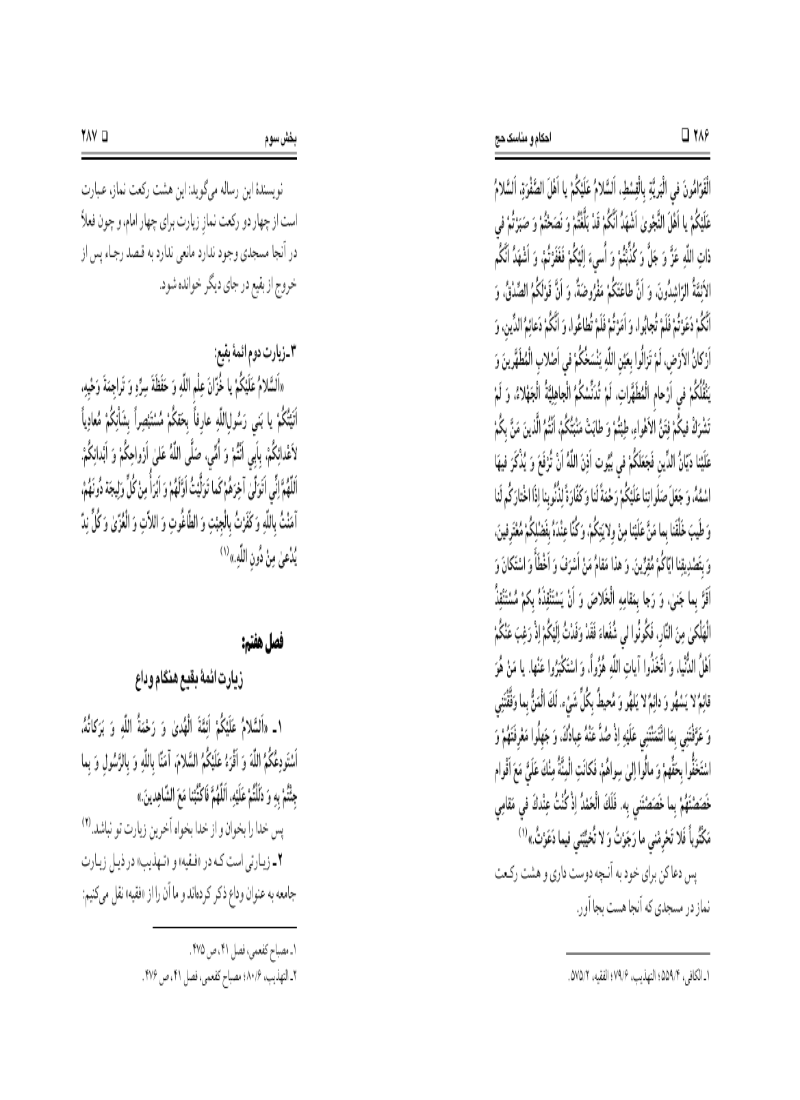 ۲۸۶ ❑ احکام و مناسک حج
الْقَوّامُونَ فِي الْبَرِيَّةِ بِالْقِسْطِ، اَلسَّلامُ عَلَيْكُمْ يا اَهْلَ الصَّفْوَةِ، اَلسَّلامُ
عَلَيْكُمْ يا اَهْلَ النَّجْوىٰ اَشْهَدُ اَنَّكُمْ قَدْ بَلَّغْتُمْ وَ نَصَحْتُمْ وَ صَبَرْتُمْ في
ذاتِ اللّهِ عَزَّ وَ جَلَّ وَ كُذِّبْتُمْ وَ أُسيءَ اِلَيْكُمْ فَغَفَرْتُمْ، وَ اَشْهَدُ اَنَّكُم
الاَئِمَّةُ الرّاشِدُونَ، وَ اَنَّ طاعَتَكُمْ مَفْرُوضَةٌ، وَ اَنَّ قَوْلَكُمُ الصِّدْقُ، وَ
اَنَّكُمْ دَعَوْتُمْ فَلَمْ تُجابُوا، وَ اَمَرْتُمْ فَلَمْ تُطاعُوا، وَ اَنَّكُمْ دَعائِمُ الدِّينِ، وَ
اَرْكانُ الاَرْضِ، لَمْ تَزالُوا بِعَيْنِ اللّهِ يَنْسَخُكُمْ في اَصْلابِ الْمُطَهَّرينَ وَ
يَنْقُلُكُمْ في اَرْحامِ الْمُطَهَّراتِ، لَمْ تُدَنِّسْكُمُ الْجاهِلِيَّةُ الْجَهْلاءُ، وَ لَمْ
تَشْرَكْ فيكُمْ فِتَنُ الاَهْواءِ، طِبْتُمْ وَ طابَتْ مَنْبَتُكُمْ، اَنْتُمُ الَّذينَ مَنَّ بِكُمْ
عَلَيْنا دَيّانُ الدِّينِ فَجَعَلَكُمْ في بُيُوت اَذِنَ اللّهُ اَنْ تُرْفَعَ وَ يُذْكَرَ فيهَا
اسْمُهُ، وَ جَعَلَ صَلَواتِنا عَلَيْكُمْ رَحْمَةً لَنا وَ كَفّارَةً لِذُنُوبِنا اِذَا اخْتارَكُم لَنا
وَ طَيَّبَ خَلْقَنا بِما مَنَّ عَلَيْنا مِنْ وِلايَتِكُمْ، وَ كُنّا عِنْدَهُ بِفَضْلِكُمْ مُعْتَرِفينَ،
وَ بِتَصْديقِنا اِيّاكُمْ مُقِرّينَ. وَ هذا مَقامُ مَنْ اَسْرَفَ وَ اَخْطَأَ وَ اسْتَكانَ وَ
اَقَرَّ بِما جَنىٰ، وَ رَجا بِمَقامِهِ الْخَلاصَ وَ اَنْ يَسْتَنْقِذَهُ بِكمْ مُسْتَنْقِذُ
الْهَلْكىٰ مِنَ النّارِ، فَكُونُوا لي شُفَعاءَ فَقَدْ وَفَدْتُ اِلَيْكُمْ اِذْ رَغِبَ عَنْكُمْ
اَهْلُ الدُّنْيا، وَ اتَّخَذُوا آياتِ اللّهِ هُزُواً، وَ اسْتَكْبَرُوا عَنْها. يا مَنْ هُوَ
قائِمٌ لا يَسْهُو وَ دائِمٌ لا يَلهُو وَ مُحيطٌ بِكُلِّ شَيْء. لَكَ الْمَنُّ بِما وَفَّقْتَني
وَ عَرَّفْتَنِي بِمَا ائْتَمَنْتَني عَلَيْهِ اِذْ صَدَّ عَنْهُ عِبادُكَ، وَ جَهِلُوا مَعْرِفَتَهُمْ وَ
اسْتَخَفُّوا بِحَقِّهِمْ وَ مالُوا اِلىٰ سِواهُمْ، فَكانَتِ الْمِنَّةُ مِنْكَ عَلَيَّ مَعَ اَقْوام
خَصَصْتَهُمْ بِما خَصَصْتَني بِهِ. فَلَكَ الْحَمْدُ اِذْ كُنْتُ عِنْدَكَ في مَقامِي
مَكْتُوباً فَلا تَحْرِمْني ما رَجَوْتُ وَ لا تُخَيِّبْني فيما دَعَوْتُ.»(۱)
پس دعا کن برای خود به آنـچه دوست داری و هشت رکـعت
نماز در مسجدی که آنجا هست بجا آور.
۱ـ الکافی، ۵۵۹/۴؛ التهذیب، ۷۹/۶؛ الفقیه، ۵۷۵/۲.
بخش سوم ❑ ۲۸۷
نویسندهٔ این رساله می‌گوید: این هشت رکعت نماز، عبارت
است از چهار دو رکعت نمازِ زیارت برای چهار امام، و چون فعلاً
در آنجا مسجدی وجود ندارد مانعی ندارد به قـصد رجـاء پس از
خروج از بقیع در جای دیگر خوانده شود.
۳ـ زیارت دوم ائمهٔ بقیع:
«اَلسَّلامُ عَلَيْكُمْ يا خُزّانَ عِلْمِ اللّهِ وَ حَفَظَةَ سِرِّهِ وَ تَراجِمَةَ وَحْيِهِ،
اَتَيْتُكُمْ يا بَني رَسُولِ‌اللّهِ عارِفاً بِحَقِّكُمْ مُسْتَبْصِراً بِشَأْنِكُمْ مُعادِياً
لاَعْدائِكُمْ، بِاَبي اَنْتُمْ وَ اُمّي، صَلَّى اللّهُ عَلىٰ اَرْواحِكُمْ وَ اَبْدانِكُمْ.
اَللّهُمَّ اِنّي اَتَوَلّىٰ آخِرَهُمْ كَما تَوَلَّيْتُ اَوَّلَهُمْ وَ اَبْرَأُ مِنْ كُلِّ وَليجَة دُونَهُمْ،
آمَنْتُ بِاللّهِ وَ كَفَرْتُ بِالْجِبْتِ وَ الطّاغُوتِ وَ اللاّتِ وَ الْعُزّىٰ وَ كُلِّ نِدّ
يُدْعىٰ مِنْ دُونِ اللّهِ.»(۱)
فصل هفتم:
زیارت ائمهٔ بقیع هنگام وداع
۱ـ «اَلسَّلامُ عَلَيْكُمْ اَئِمَّةَ الْهُدىٰ وَ رَحْمَةُ اللّهِ وَ بَرَكاتُهُ،
اَسْتَودِعُكُمُ اللّهَ وَ اَقْرَءُ عَلَيْكُمُ السَّلامَ، آمَنّا بِاللّهِ وَ بِالرَّسُولِ وَ بِما
جِئْتُمْ بِهِ وَ دَلَلْتُمْ عَلَيْهِ، اَللّهُمَّ فَاكْتُبْنا مَعَ الشّاهِدينَ.»
پس خدا را بخوان و از خدا بخواه آخرین زیارت تو نباشد.(۲)
۲ـ زیـارتی است کـه در «فـقیه» و «تـهذیب» در ذیـل زیـارت
جامعه به عنوان وداع ذکر کرده‌اند و ما آن را از «فقیه» نقل می‌کنیم:
۱ـ مصباح کفعمی، فصل ۴۱، ص ۴۷۵.
۲ـ التهذیب، ۸۰/۶؛ مصباح کفعمی، فصل ۴۱، ص ۴۷۶.